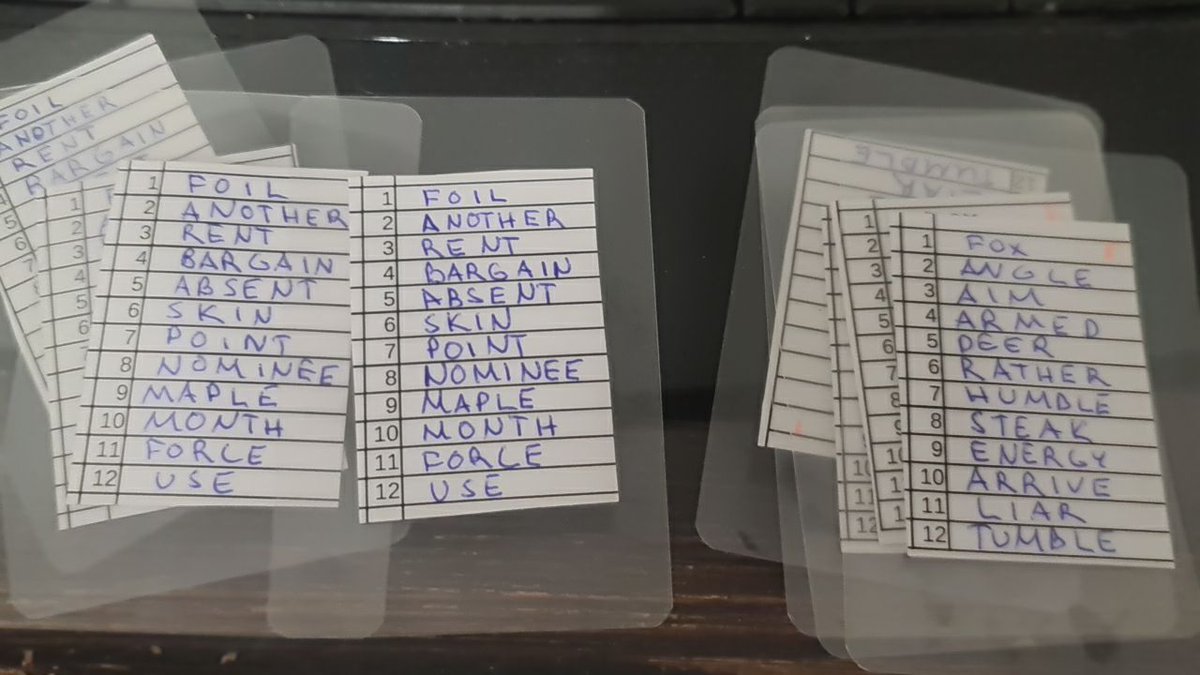 FOIL
ANOTHER
RENT
BARGAIN
5
6
7
1
2
3
4
5
6
1 FOIL
2 ANOTHER
3 RENT
4 BARGAIN
5 ABSENT
6 SKIN
7 POINT
8 NOMINEE
9 MAPLE
10 MONTH
11 FORCE
12 USE
1 FOIL
2 ANOTHER
3 RENT
4 BARGAIN
5 ABSENT
6 SKIN
7 POINT
8 NOMINEE
9 MAPLE
10 MONTH
11 FORCE
12 USE
TUMBLE
10
11
12
1
2
3
4
5
6
7
8
1 FOX
2 ANGLE
3 AIM
4 ARMED
5 DEER
6 RATHER
7 HUMBLE
8 STEAK
9 ENERGY
10 ARRIVE
11 LIAR
12 TUMBLE